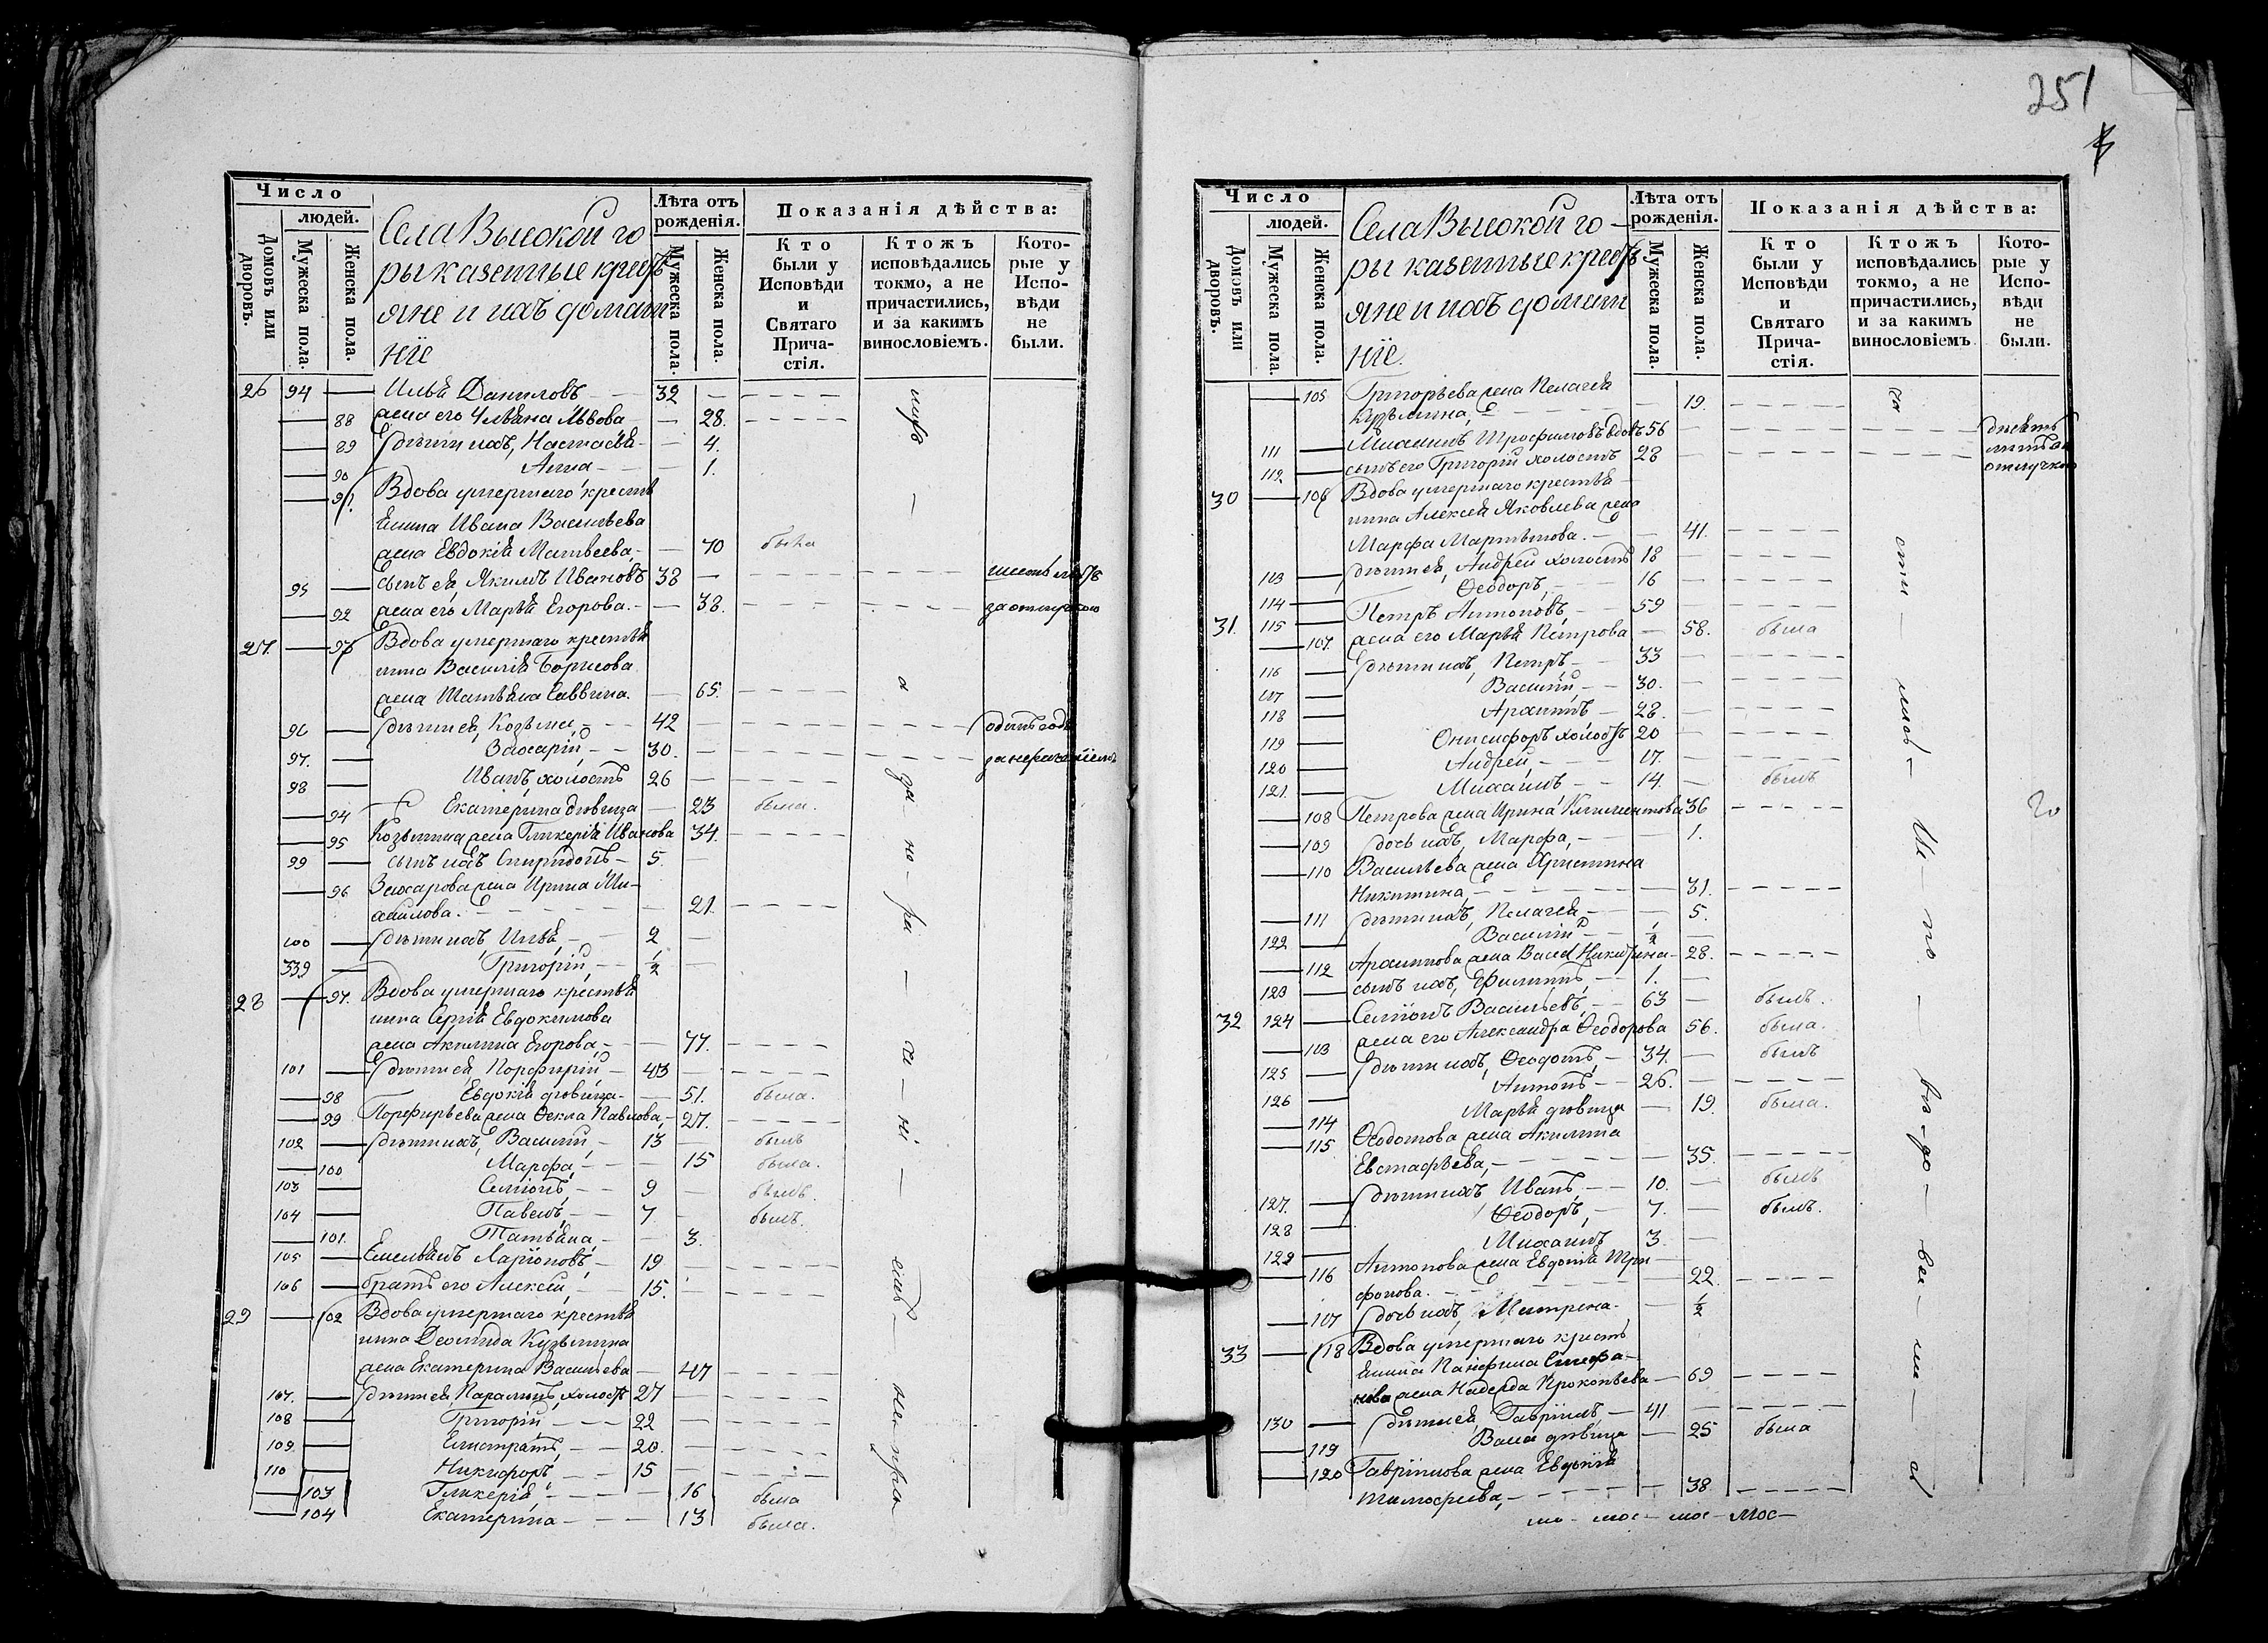 Число
людей.
Домовъ или дворовъ.
Мужеска пола.
Женска пола.
Села Высокой го
ры казенные крестъ
яне и ихъ домаш
нїе
Лѣта отъ рожденія.
Мужеска пола.
Женска пола.
Показанія дѣйства:
Кто были у Исповѣди и Святаго Причастія.
Ктожъ исповѣдались токмо, а не причастились, и за какимъ винословіемъ.
Которые у Исповѣди не были.
26 94 — Илья Даниловъ 32
— 88 жена его Ульяна Львова 28.
— 89 дѣти ихъ, Настасья 4.
— 90 Анна 1.
— 91. Вдова умершаго крестья
нина Ивана Васильева
жена Евдокія Матвеева, 70 была
95 — сынъ ея, Якимъ Ивановъ 38
— 92 жена его Марья Егорова. 38. за отлучкою
27. — 93 Вдова умершаго крестья
нина Василья Борисова
жена Татьяна Саввина. 65.
96 — дѣти ея, Козьма, 42 одинъ годъ
97. — Захарій, 30. за нераченіемъ
98 — Иванъ, холостъ 26
— 94 Екатерина дѣвица 23 была.
— 95 Козьмина жена Гликерія Иванова 34.
99 — сынъ ихъ Спиридонъ 5.
— 96 Захарова жена Ирина Ми-
хайлова. 21.
100 — дѣти ихъ, Илья, 2
339 — Григорій, 1/2
28 — 97. Вдова умершаго крестья
нина Сергія Евдокимова
жена Акилина Егорова, 77.
101 — дѣти ея Порфирій 43
— 98 Евдокія дѣвица 51. была.
— 99 Порфирьева жена Ѳекла Павлова, 27.
102 — дѣти ихъ, Василій, 13 былъ
— 100 Марфа, 15 была.
103 — Семіонъ, 9 былъ.
104 — Павелъ, 7 былъ.
— 101. Татьяна, 3.
105 — Емельянъ Ларіоновъ, 19
106 — братъ его Алексей, 15.
29 — 102 Вдова умершаго крестья
нина Деомида Кузьмина
жена Екатерина Васильева 47
107. — дѣти ея, Парамонъ, холостъ 27
108 — Григорій, 22
109. — Елистратъ, 20.
110 — Никифоръ, 15
— 103 Гликерія, 16 была
— 104 Екатерина 13 была.
251
Число
людей.
Домовъ или дворовъ.
Мужеска пола.
Женска пола.
Села Высокой го
ры казенные крестъ
яне и ихъ домаш
нїе.
Лѣта отъ рожденія.
Мужеска пола.
Женска пола.
Показанія дѣйства:
Кто были у Исповѣди и Святаго Причастія.
Ктожъ исповѣдались токмо, а не причастились, и за какимъ винословіемъ
Которые у Исповѣди не были.
— 105 Григорьева жена Пелагея
Кузьмина, 19.
111 — Михаилъ Трофимовъ вдовъ 56
112 — сынъ его Григорій холостъ 28 отлучкою
30 — 106 Вдова умершаго крестья
нина Алексея Яковлева жена
Марфа Мартынова. 41.
113 — дѣти ея, Андрей холостъ 18
114 — Ѳеодоръ, 16
31. 115 — Петръ Антоновъ, 59
— 107. жена его Марья Петрова 58. была
116 — дѣти ихъ, Петръ 33
117 — Василій, 30.
118 — Архипъ 28.
119 — Онисифоръ холостъ 20
120 — Андрей, 17.
121. — Михаилъ 14. былъ
— 108 Петрова жена Ирина Климентова 36
— 109 дочь ихъ, Марфа, 1.
— 110 Васильева жена Христина
Никитина, 31.
— 111 дѣти ихъ, Пелагея 5.
122 — Василій 1/2
— 112 Архипова жена Васса Никитина 28.
123 — сынъ ихъ, Филиппъ, 1.
32 124 — Семіонъ Васильевъ, 63 былъ.
— 113 жена его Александра Ѳеодорова 56. была.
125 — дѣти ихъ, Ѳеодотъ, 34. былъ
126 — Антонъ 26.
— 114 Марья дѣвица 19. была.
— 115 Ѳеодотова жена Акилина
Евстафьева, 35.
127. — дѣти ихъ Иванъ, 10. былъ
128 — Ѳеодоръ, 7. былъ.
129 — Михаилъ 3.
— 116 Антонова жена Евдокія Три
фонова. 22.
— 117 дочь ихъ, Матрена. 1/2
33 — 118 Вдова умершаго кресть
янина Панфила Стефа-
нова жена Надежда Прокопьева 69
130 — дѣти ея, Гавріилъ 41
— 119 Васса дѣвица 25 была
— 120 Гавріилова жена Евдокія
Тимофеева, 38.